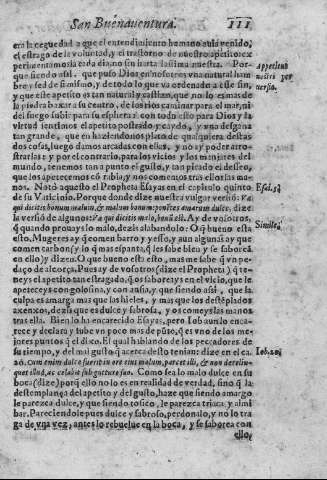 San Buenauentura. 111
era la ceguedad a que el entendimiento humano auia venido,
el estrago de la voluntad, y el trastorno de nuestro apetito: ex
perimentamosla cada dia, no sin harta lastima nuestra. Por-
que siendo assi, que puso Dios en nosotros vna natural ham
bre y sed de si mismo, y de todo lo que va ordenado a este fin,
y que este apetito es tan natural y casi tan, que no lo es mas de
la piedra baxar a su centro, de los rios caminar para el mar, ni
del fuego subir para su esphera: con todo esso para Dios y la
virtud tenemos el apetito postrado y caydo, y vna desgana
tan grande, que en haziendonos plato de qualquiera destas
dos cosas, luego damos arcadas con ellas, y no ay poder arro-
strarlas: y por el contrario, para los vicios y los manjares del
mundo, tenemos tan a punto el gusto, y tan picado el desseo,
que los apetecemos cō rabia, y nos comemos tras ellos las ma-
nos. Notò aquesto el Propheta Esayas en el capitulo quinto
de su Vaticinio. Porque donde dize nuestra vulgar version: Va
qui dicitis bonum malum, & malum bonum: ponētes amarum dulce, dize
la versiō de algunos: Va qui dicitis malo, bonū est. Ay de vosotros,
q̄ quando prouays lo malo, dezis alabandolo: O q̄ bueno esta
esto. Mugeres ay q̄ comen barro y yesso, y aun algunas ay que
comen carbon (y lo q̄ mas espanta, q̄ les sabe biē y se saborea
en ello) y dizen. O que bueno esta esto, mas me sabe q̄ vn pe-
daço de alcorça. Pues ay de vosotros (dize el Propheta) q̄ te-
neys el apetito tan estragado, q̄ os saboreays en el vicio, que le
apeteceys con golosina, y con ansia, y que siendo assi, que la
culpa es amarga mas que las hieles, y mas que los destēplados
axenxos, dezis que es dulce y sabrosa, y os comeys las manos
tras ella. Bien lo ha encarecido Esayas, pero Iob aun lo enca-
rece y declara y tube vn poco mas de pūto, q̄ es vno de los me-
jores puntos q̄ el dixo. El qual hablando de los peccadores de
su tiempo, y del mal gusto q̄ acerca desto tenian: dize en el ca.
20. Cum enim dulce fuerit in ore eius malum, parcet illi, & non derelin-
quet illud, ac celabit sub gutture suo. Como sea lo malo dulce en su
boca (dize) porq̄ ello no lo es en realidad de verdad, sino q̄ la
destemplança del apetito y del gusto, haze que siendo amargo
le parezca dulce, y que siendo tosico, le parezca triaca y almi
bar. Pareciendole pues dulce y sabroso, perdonalo, y no lo tra
ga de vna vez, antes lo rebuelue en la boca, y se saborea con
ello,
Appetitus
nostri per
uersio.
Esai. 5.
Simile.
Iob. 20.